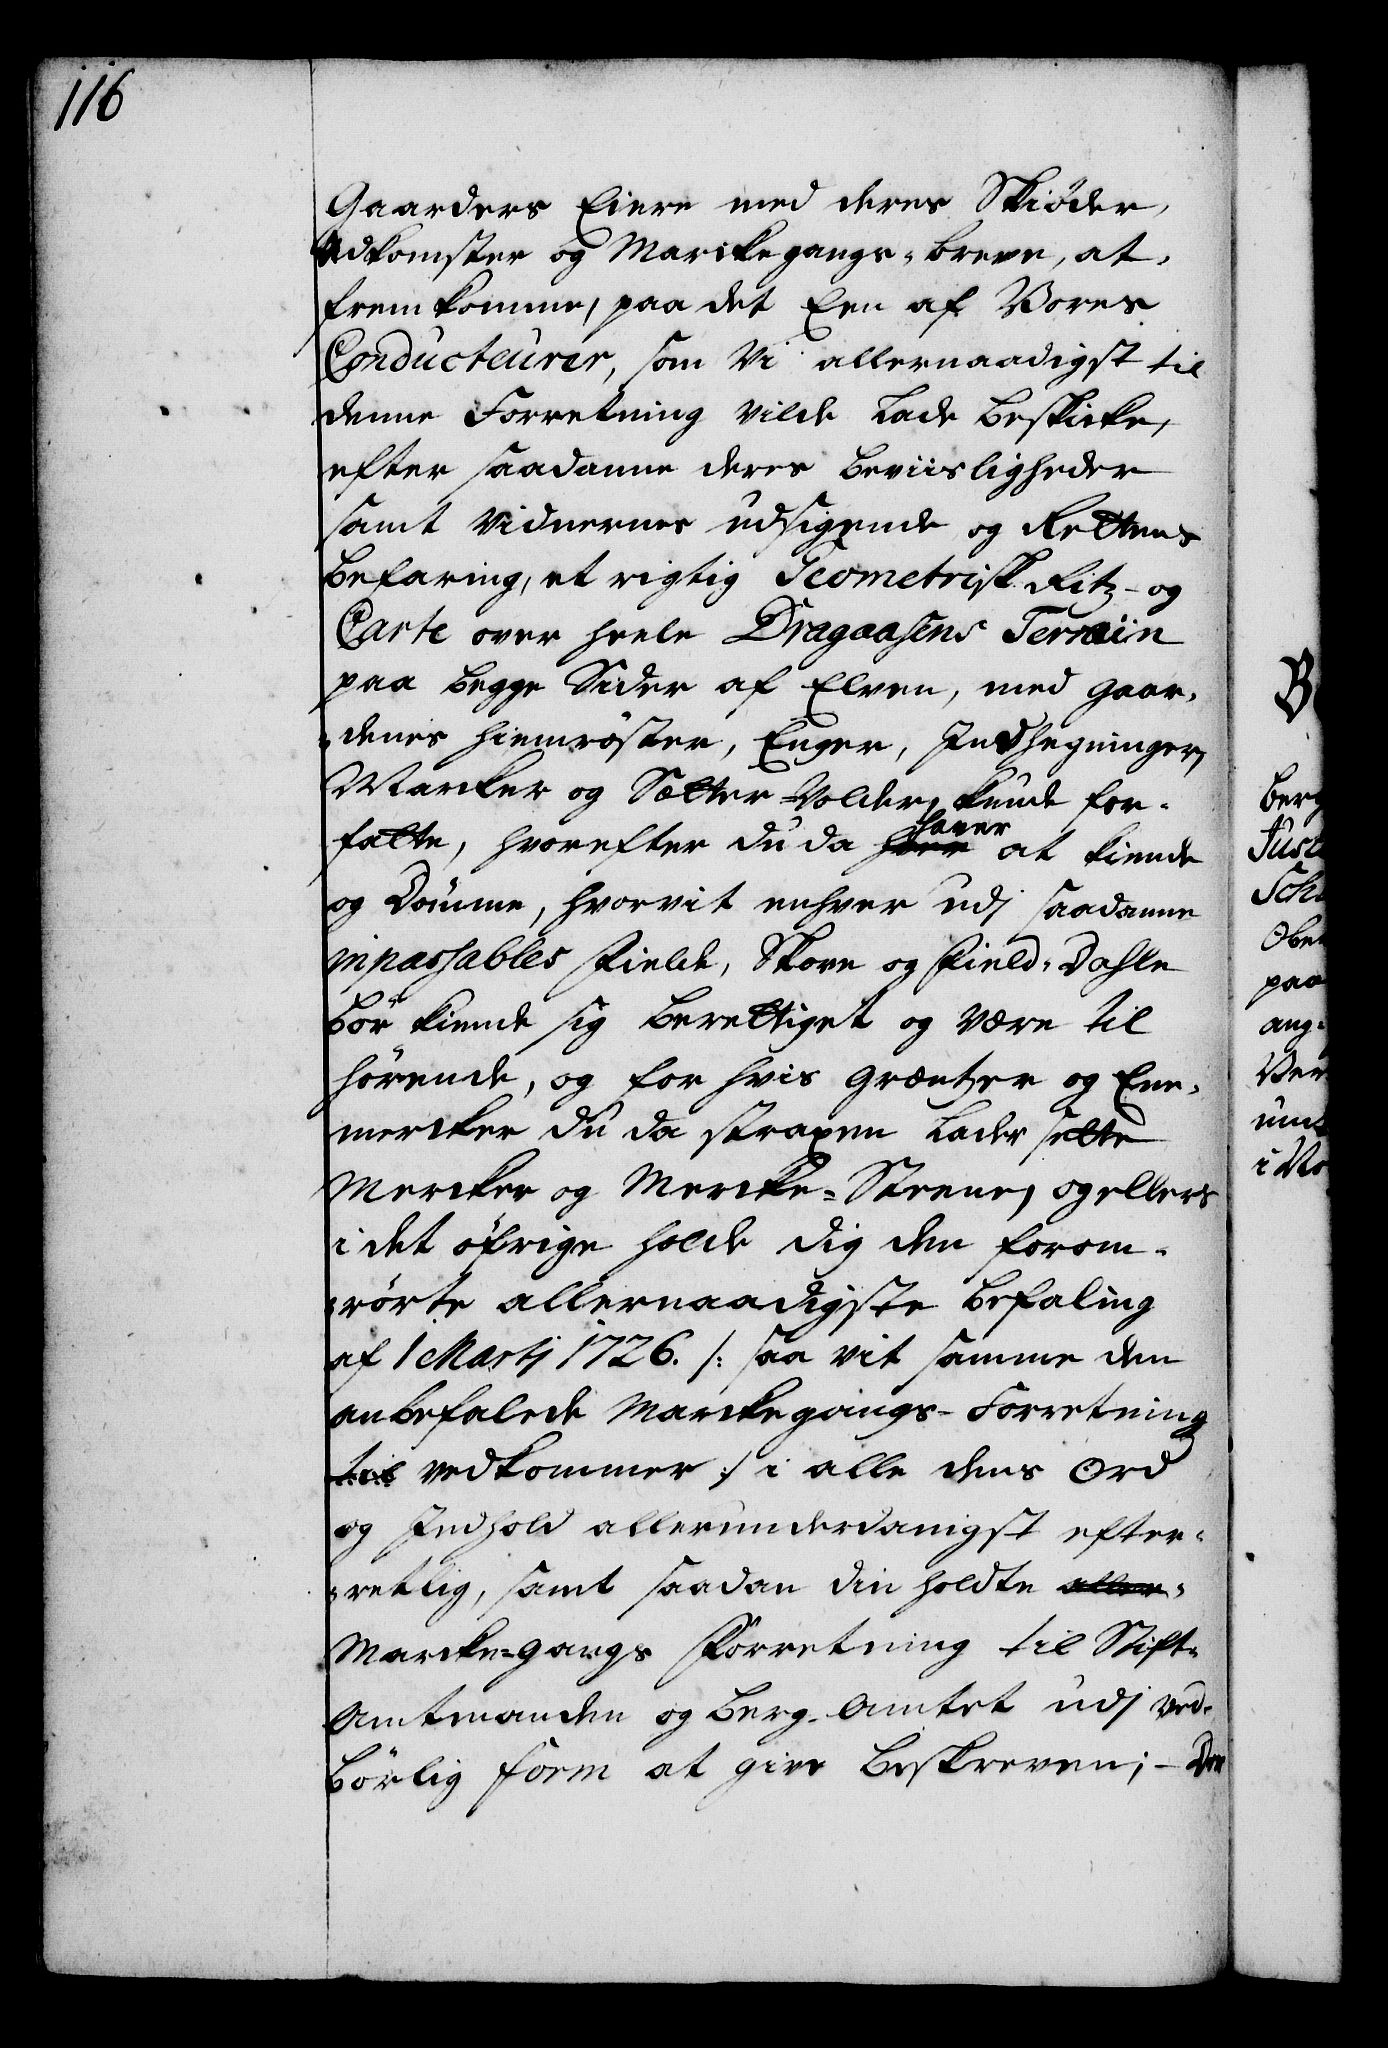 116
Gaarders Eiere med deres Skiøder,
Adkomster og Marckegangs-breve, at
fremkomme, paa det Een af Vores
Conducteurer, som Vi allernaadigst til
denne Forretning vilde lade beskicke,
efter saadanne deres beviisligheder
samt Vidnernes udsigende og Rettens
befaring, et rigtig Geometrisk Ritz- og
Carte over heele Dragaasens Terrain
paa begge Sider af Elven, med gaar-
denes hiemröster, Enger, Indhegninger,
Marcker og Sætter-Volder, kunde for-
fatte, hvorefter du da haver at kiende
og Dömme, hvorvit enhver udj saadanne
inpassables Fielde, Skove og Field-Dahle
bör kiende sig berettiget og være til
hörende, og for hvis Græntzer og Ene-
mercker du da straxen lader sette
Mercker og Mercke-Steene, og ellers
i det öfrige holde dig den forom-
rörte allernaadigste befaling
af 1 Martij 1726. /: saa vit samme den
anbefalede Marckegangs-Forretning
vedkommer :/ i alle dens Ord
og Indhold allerunderdanigst efter-
rettlig, samt saadan din holdte
Marcke-gangs Forretning til Stift-
Amtmanden og berg-Amtet udj ved-
börlig form at give beskreven; - Den
Be
berg
Just
Sch
Obe
paa
ang-
Ver
um
i Vo